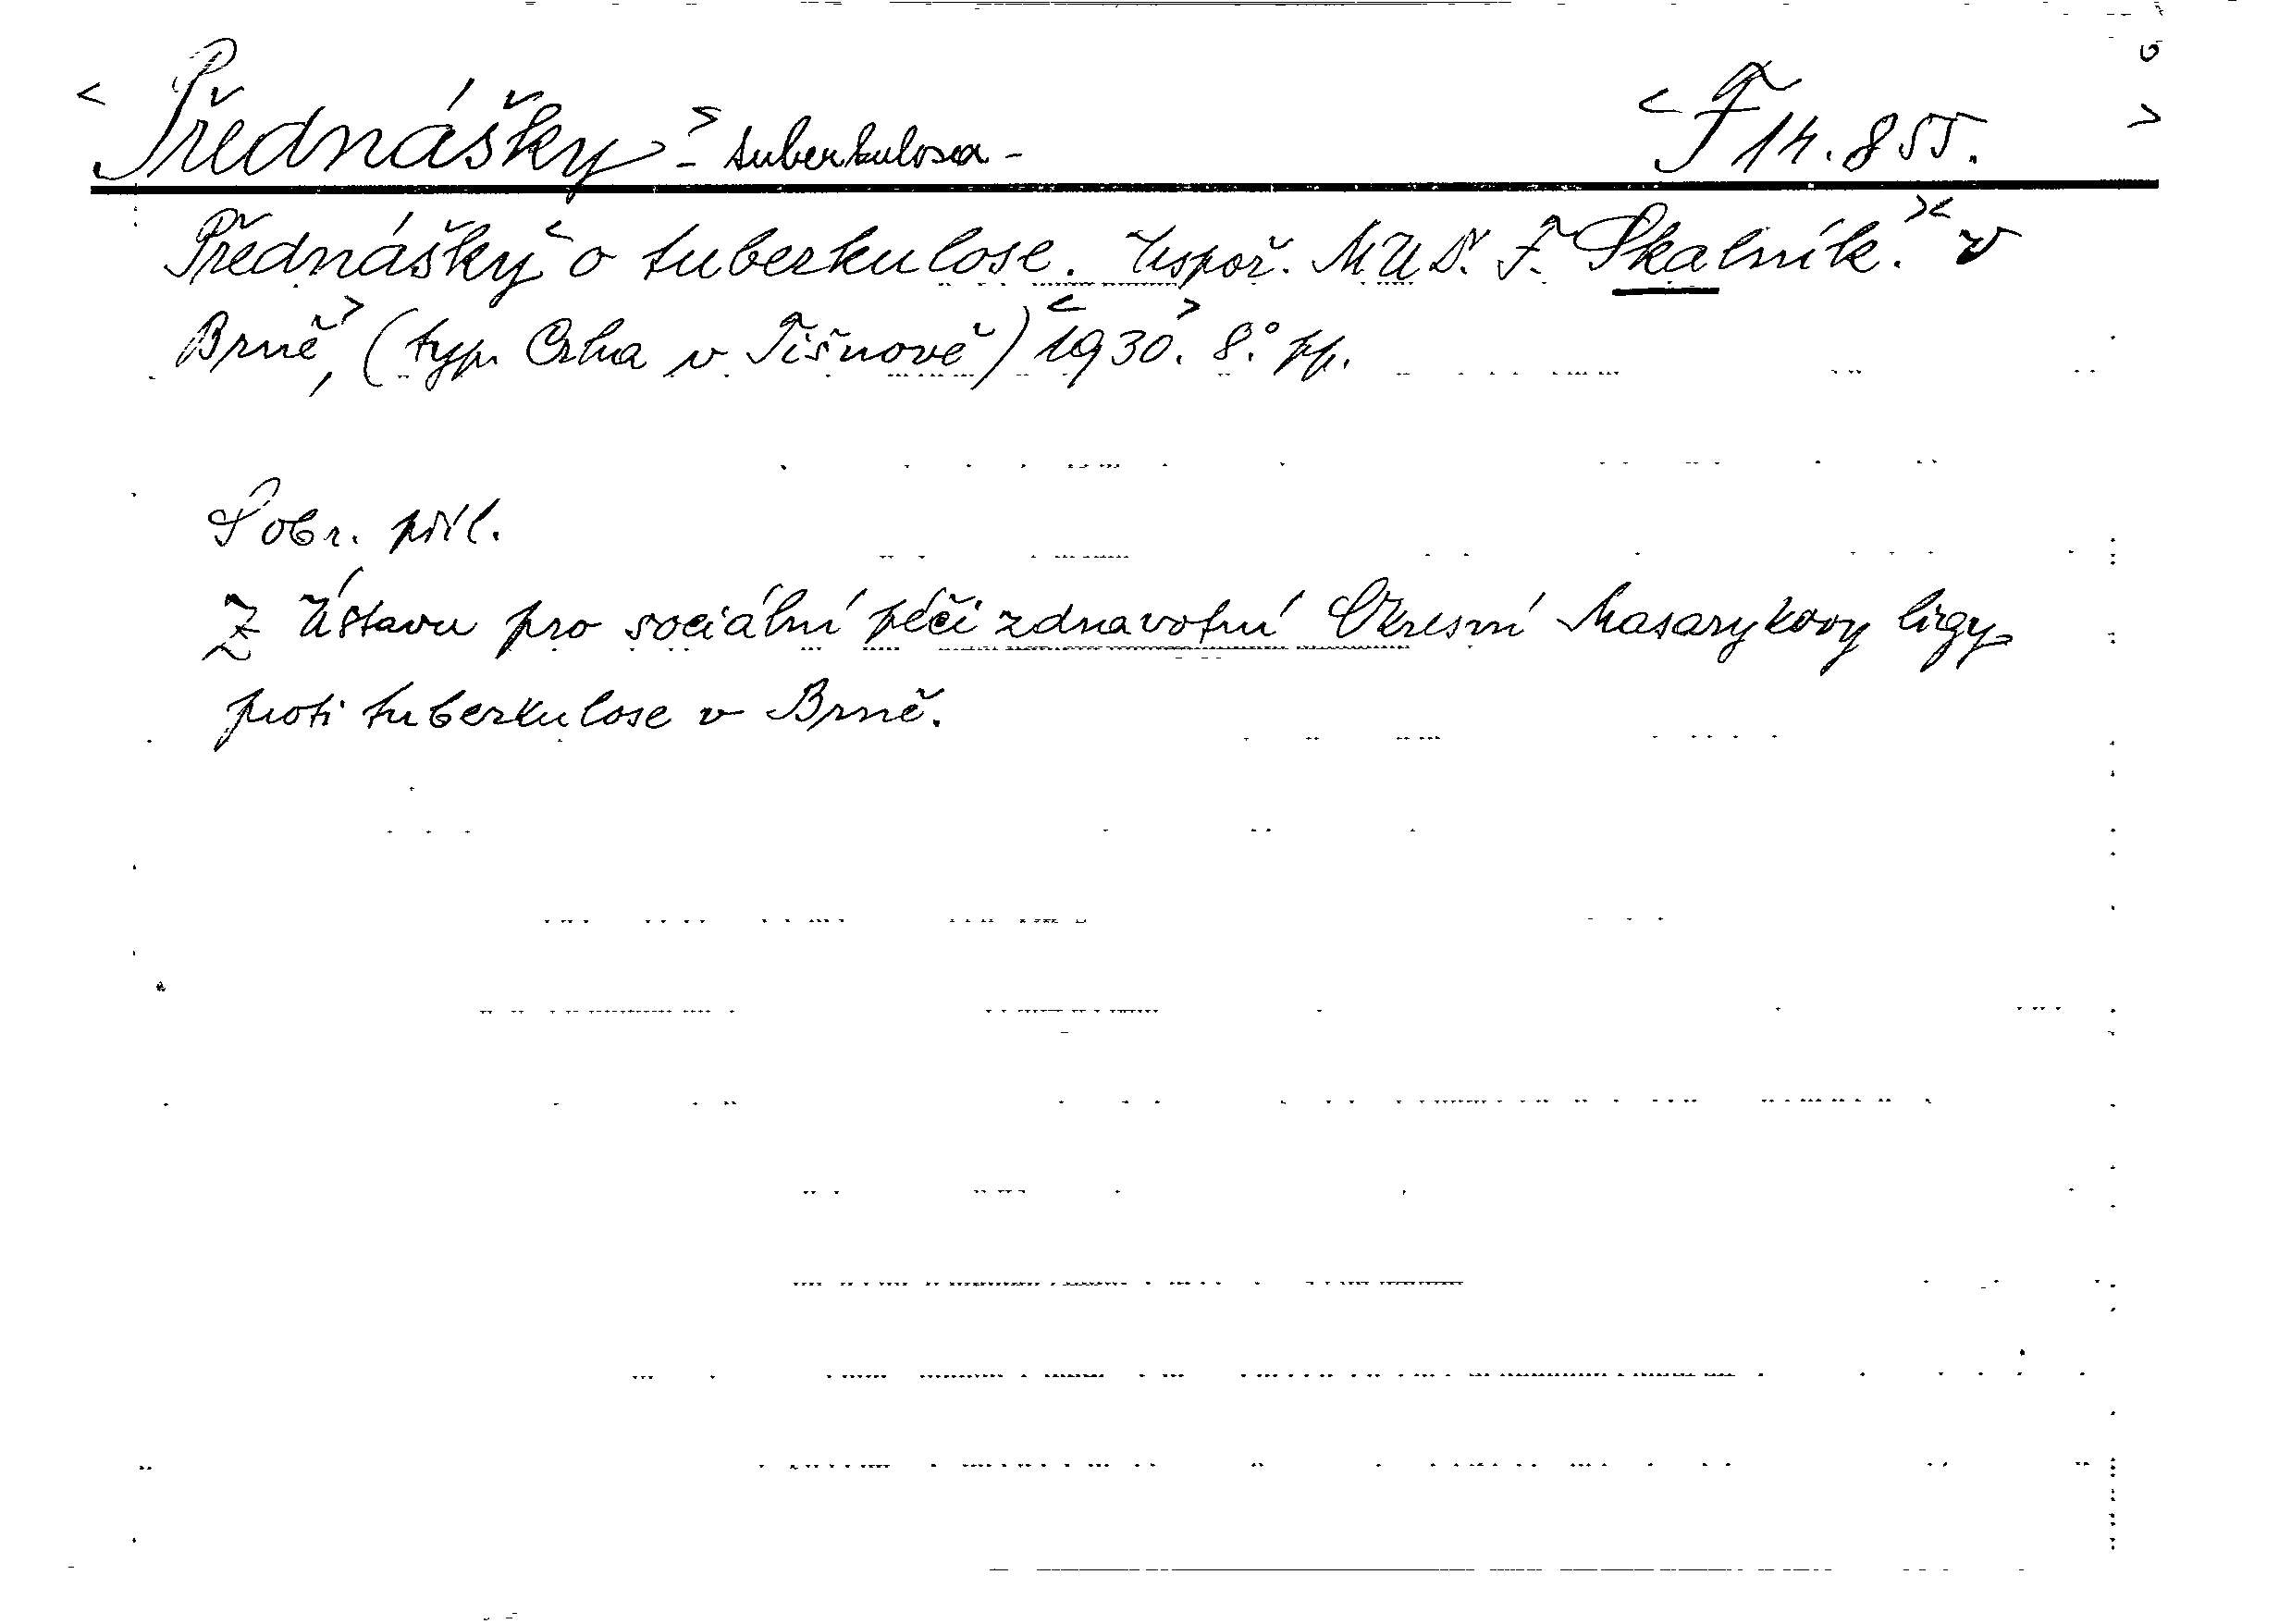 <Přednášky> - tuberkulosa - <F 14.855.>
Přednášky < o tuberkulose. Uspoř. MUDr. F. Skalník. >< V
Brně>, (typ. Crha v Tišnově) <1930.> 8.° pp.
S obr. příl.
Z Ústavu pro sociální péči zdravotní Okresní Masarykovy ligy
proti tuberkulose v Brně.